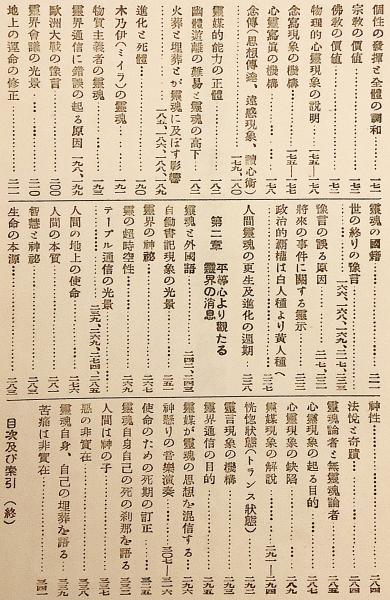 個性の發揮と全體の調和…一七一
宗教の價値…一七二
佛教の價値…一七三
物理的心靈現象の說明…一七五—一七八
念寫現象の機構…一七五—一七七
心靈寫眞の機構…一七八
念傳（思想傳達、遠感現象、讀心術）…一七九、一八〇
靈媒的能力の正體…一八一
幽體遊離の難易と靈魂の高下…一八二
火葬と埋葬とが靈魂に及ぼす影響…一八五、一八六、一八八、一八九
進化と死體…一九〇
木乃伊（ミイラ）の靈魂…一九一
物質主義者の靈魂…一九二
靈界通信に錯誤の起る原因…一九八、一九九
歐洲大戰の像言…二〇〇
靈界會議の光景…二〇〇
地上の運命の修正…二一一
靈魂の國籍…二一一
世の終りの豫言…一六六、一六八、一九二、二二七、二三五
豫言の誤る原因…二二七、二三一
將來の事件に關する靈示…二三三
政治的霸權は白人種より黃人種へ…二三七
人間靈魂の更生及び進化の週期…二三八
第二章 平等心より觀たる靈界の消息
靈魂と外國語…二四一、二四三
自働書記現象の光景…二五八
靈界の神祕…二六七
靈の超時空性…二六八
テーブル通信の光景…二三九、二六九、二七四、二八五
人間の地上の使命…二七六
人間の本質…二八一
智慧と神祕…二八二
生命の本源…二八三
神性…二八四
法悅と奇蹟…二八四
靈魂論者と無靈魂論者…二八五
心靈現象の起る目的…二八七
心靈現象の缺陷…二八九
靈媒現象の解說…二九一—二九四
恍惚狀態（トランス狀態）…二九二
靈言現象の機構…二九三
靈界通信の目的…二九五
靈媒が靈魂の思想を混信する…二九六
神懸りの音樂演奏…三〇七—三一六
使命のための死期の訂正…三二五
靈魂自身自己の死の刹那を語る…三三二
人間は神の子…三三七
惡の非實在…三三八
靈魂自身、自己の埋葬を語る…三三九
苦痛は非實在…三四一
目次及び索引（終）